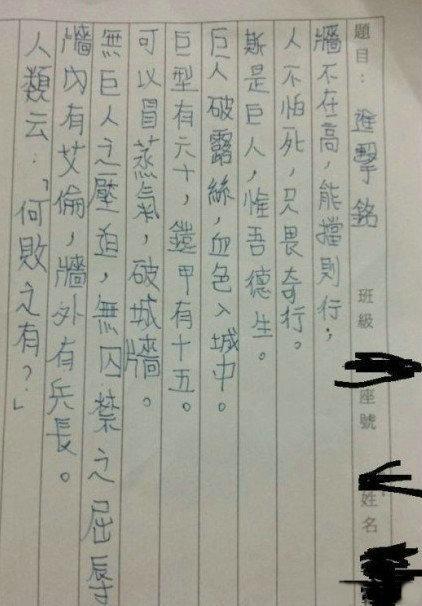 題目：進擊銘 班級 座號 姓名
牆不在高，能擋則行；
人不怕死，只畏奇行。
斯是巨人，惟吾德生。
巨人破露絲，血色入城中。
巨型有六十，鎧甲有十五。
可以冒蒸氣，破城牆。
無巨人之壓迫，無囚禁之屈辱
牆內有艾倫，牆外有兵長。
人類云：「何敗之有？」